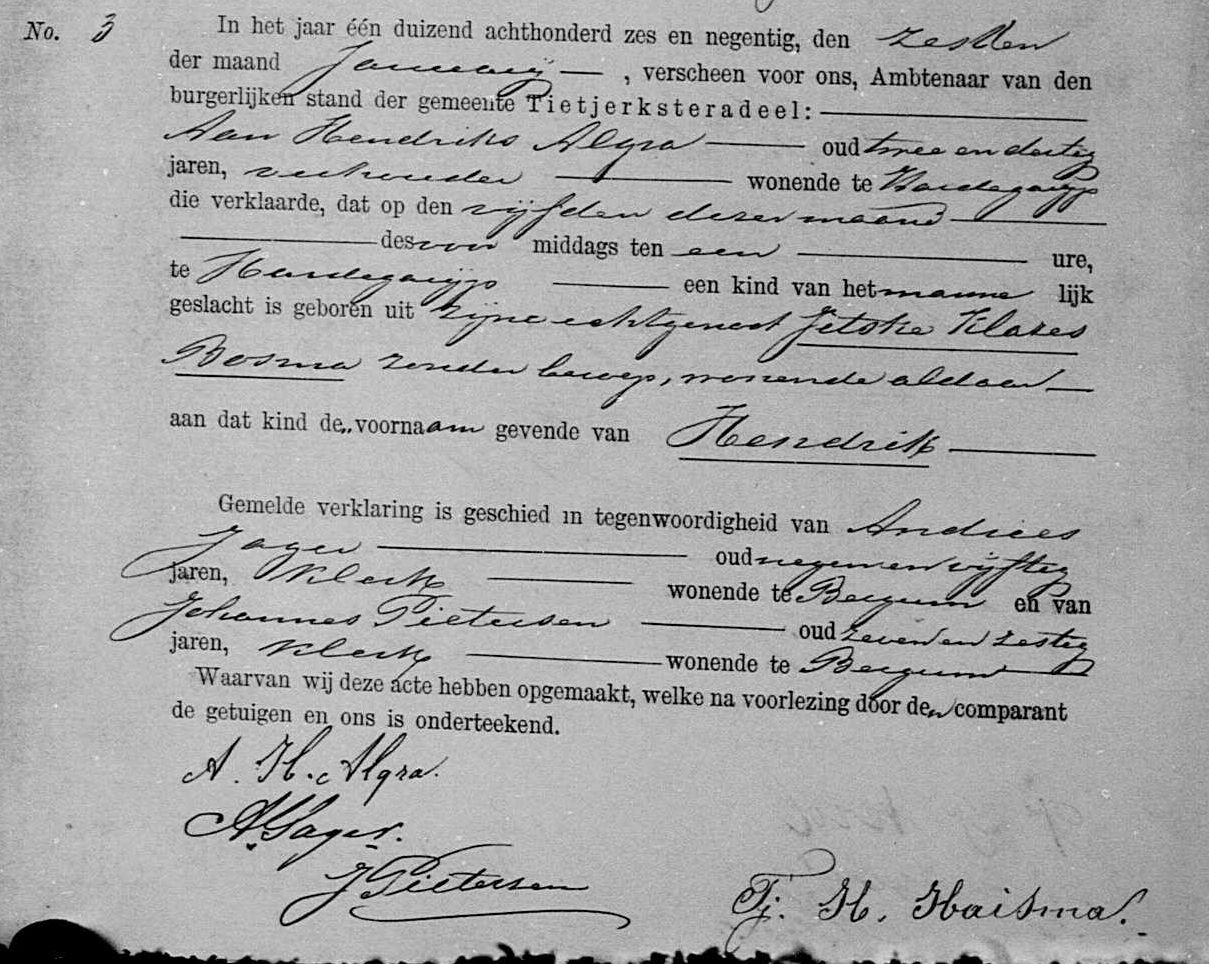 No. 3
In het jaar één duizend achthonderd zes en negentig, den zesden
der maand Januarij, verscheen voor ons, Ambtenaar van den
burgerlijken stand der gemeente Tietjerksteradeel:
Aan Hendriks Algra oud twee en dertig
jaren, veehouder wonende te Hardegarijp
die verklaarde, dat op den vijfden dezer maand
des voor middags ten een ure,
te Hardegarijp een kind van het manne lijk
geslacht is geboren uit zijne echtgenoot Jetske Klazes
Bosma zonder beroep, wonende aldaar
aan dat kind de„ voornaam gevende van Hendrik
Gemelde verklaring is geschied in tegenwoordigheid van Andries
Jager oud negen en vijftig
jaren, klerk wonende te Bergum en van
Johannes Pietersen oud zeven en zestig
jaren, klerk wonende te Bergum
Waarvan wij deze acte hebben opgemaakt, welke na voorlezing door de„ comparant
de getuigen en ons is onderteekend.
A. H. Algra.
A. Jager.
J Pietersen
Tj. H. Haisma.